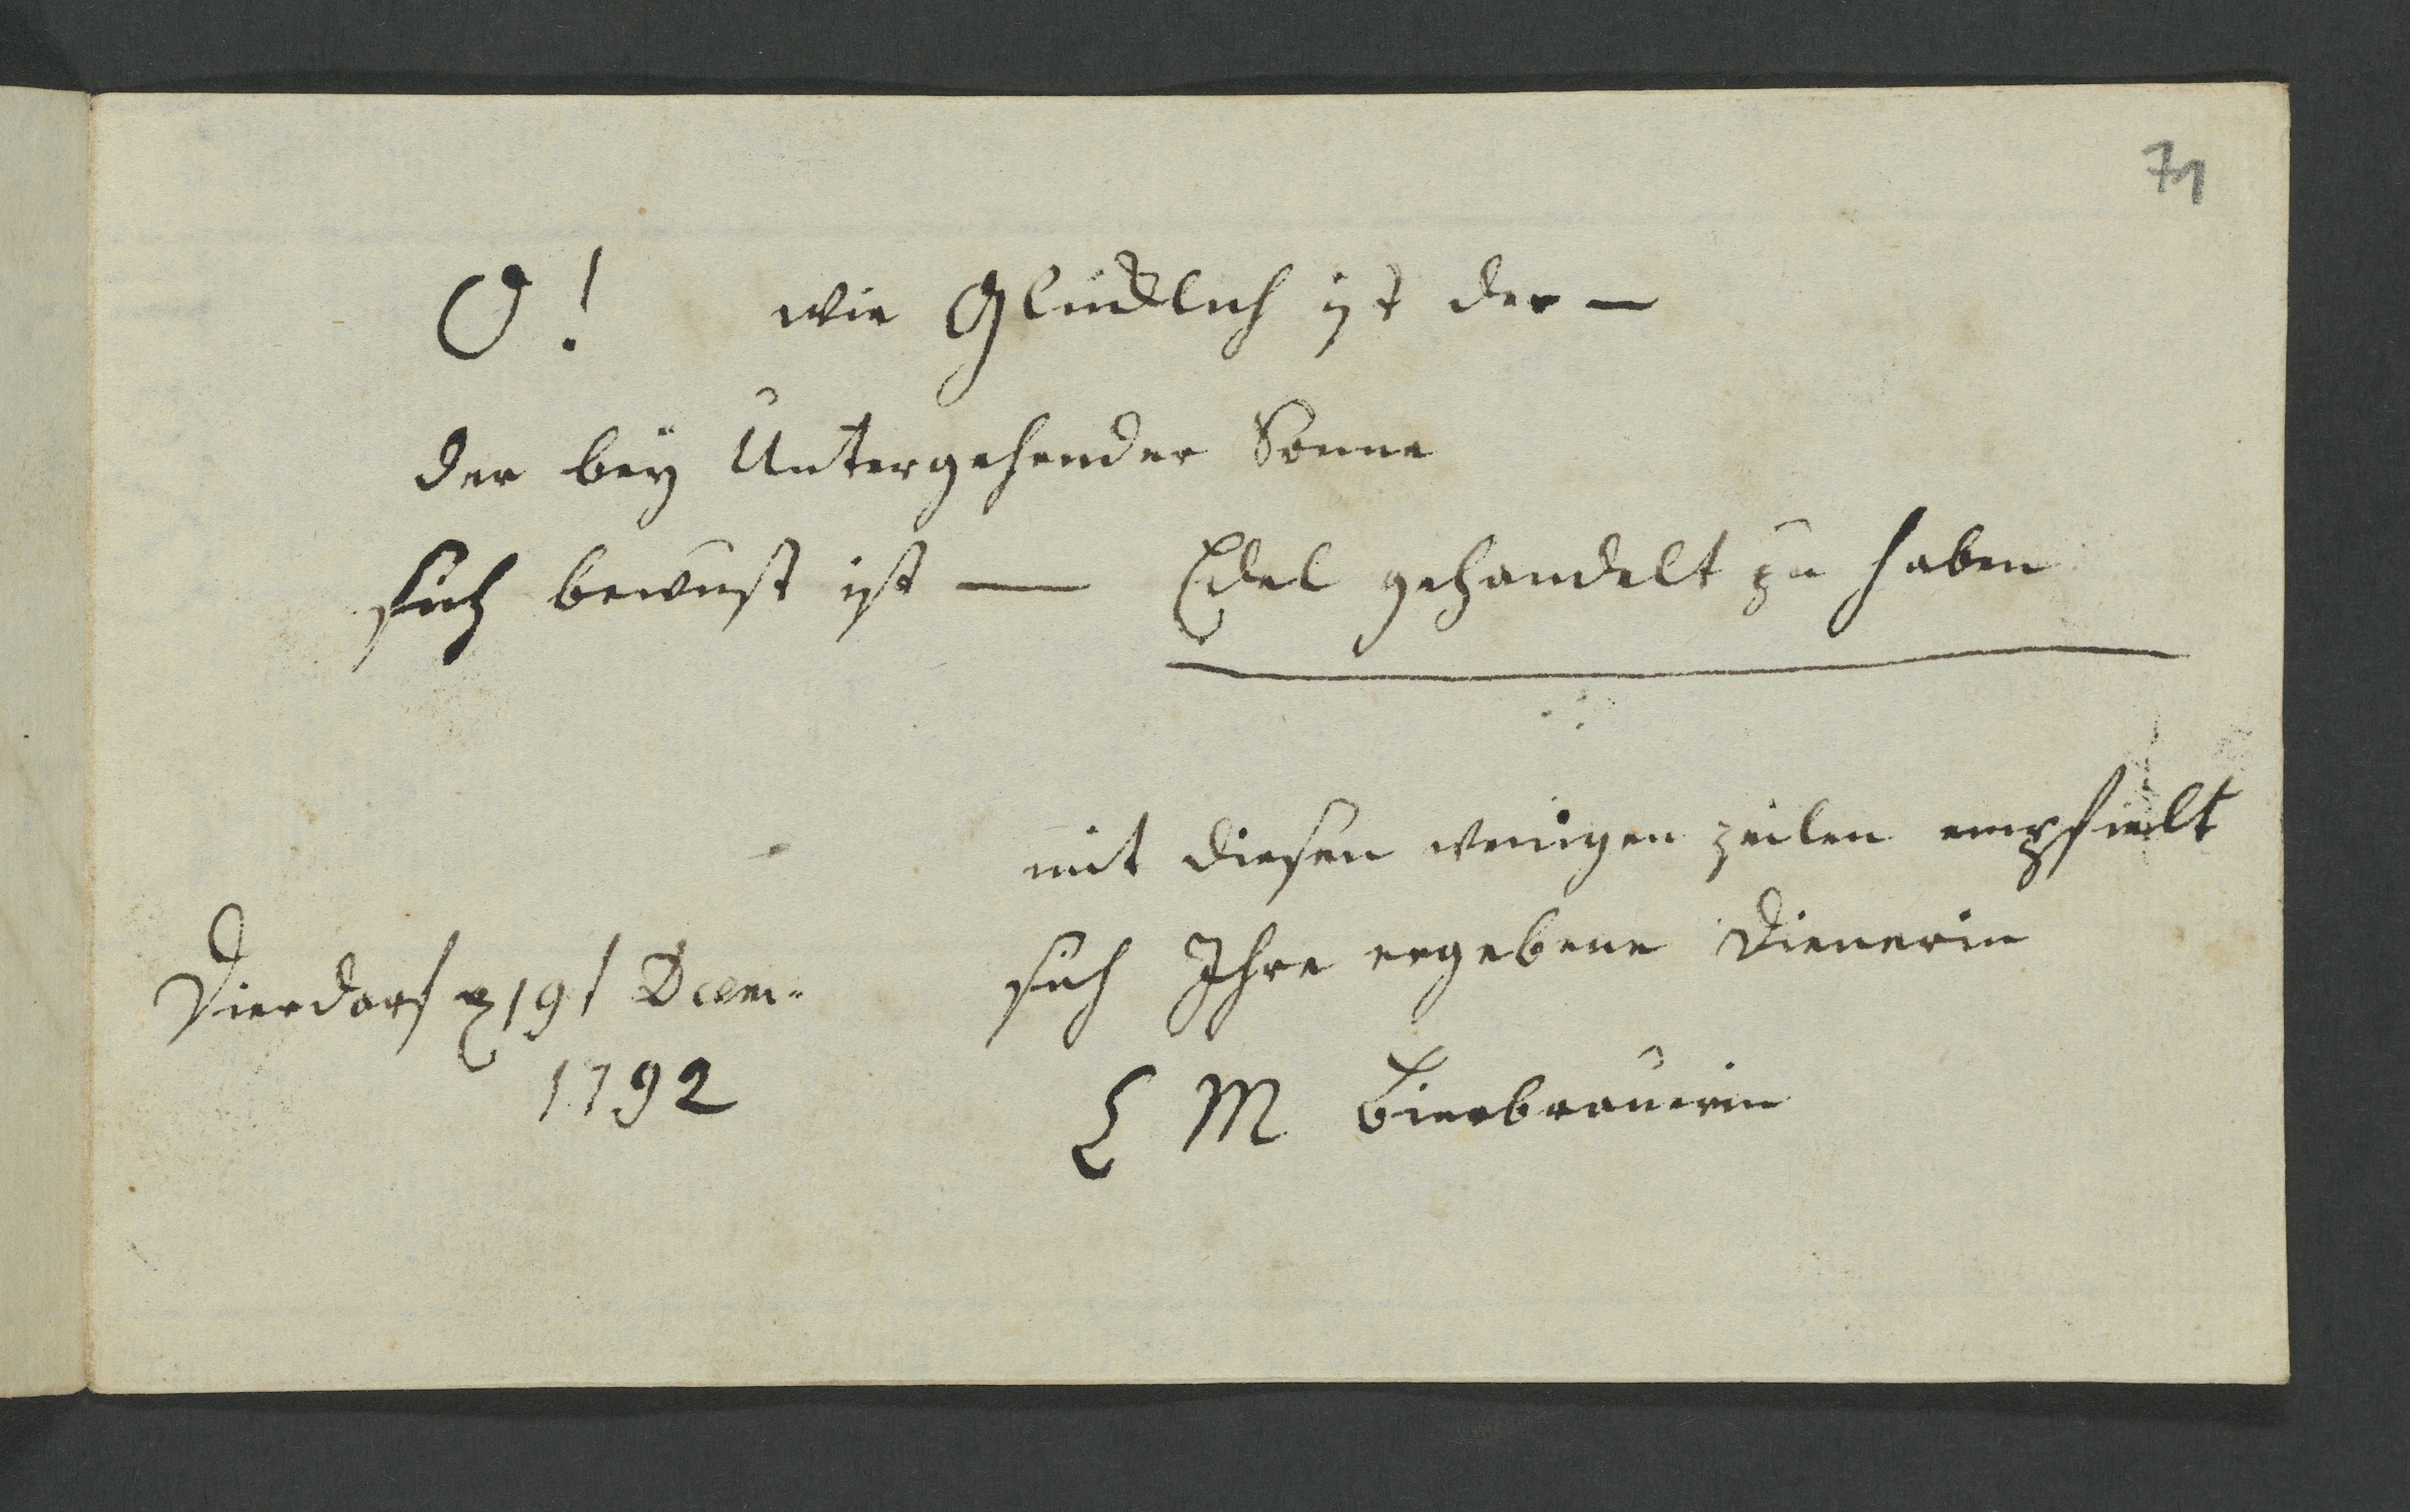 71
O! wie Glücklich ist der —
der bey Untergehender Sonne
sich bewust ist — Edel gehandelt zu haben
mit diesen wenigen zeilen empfielt
sich Ihre ergebene Dienerin
Dierdorf 19t Dcem:
1792
L M Bierbrauerin